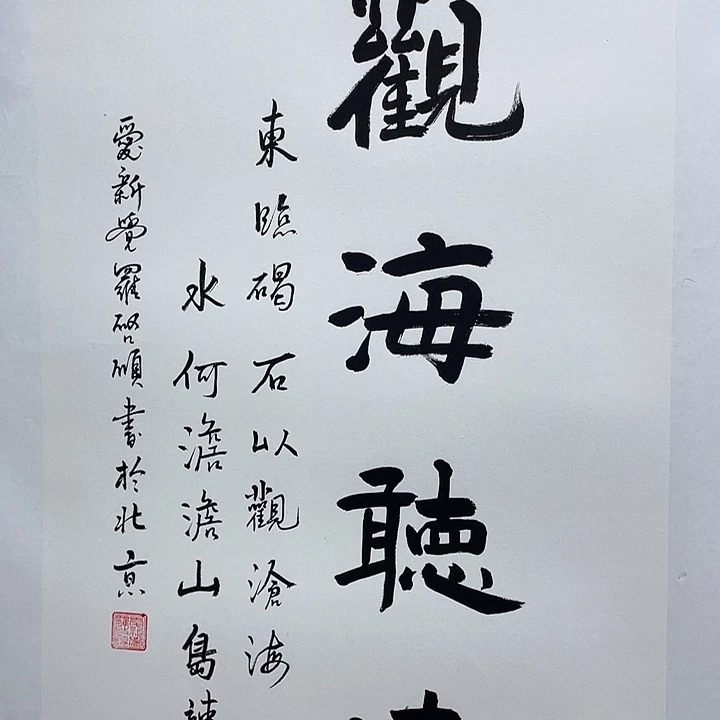 觀海聽
東臨碣石以觀滄海
水何澹澹山島
愛新覺羅啓碩書於北京